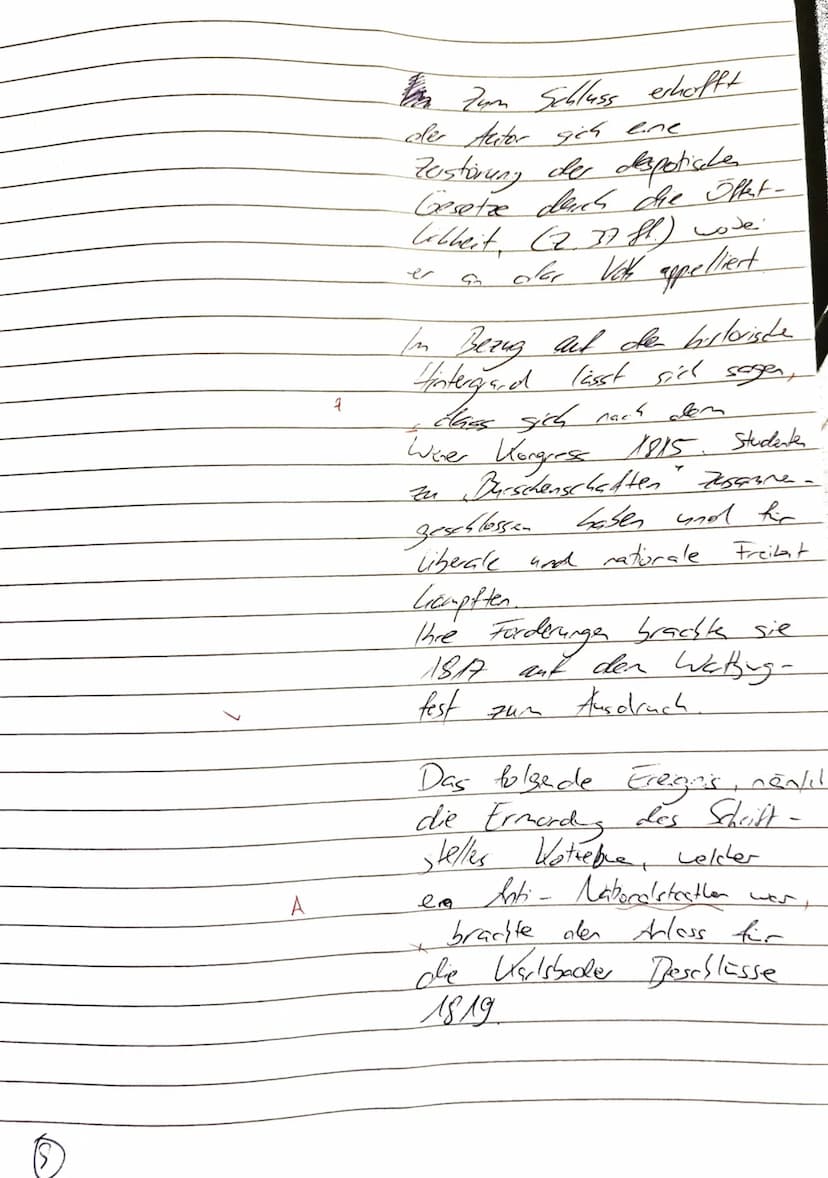 Zum Schluss erhofft
der Autor sich eine
Zerstörung der despotischen
Gesetze durch die Öffent-
lichkeit, (Z. 37 ff.) wobei
er an das Volk appelliert.
Im Bezug auf den historischen
Hintergrund lässt sich sagen,
dass sich nach dem
Wiener Kongress 1815. Studenten
zu „Burschenschaften“ zusamme-
geschlossen haben und für
liberale und nationale Freiheit
kämpften.
Ihre Forderungen brachten sie
1817 auf dem Wartburg-
fest zum Ausdruck.
Das folgende Ereignis, nämlich
die Ermordung des Schrift-
stellers Kotzebue, welcher
ein Anti-Nationalstaatler war,
A
brachte den Anlass für
die Karlsbader Beschlüsse
1819.
5